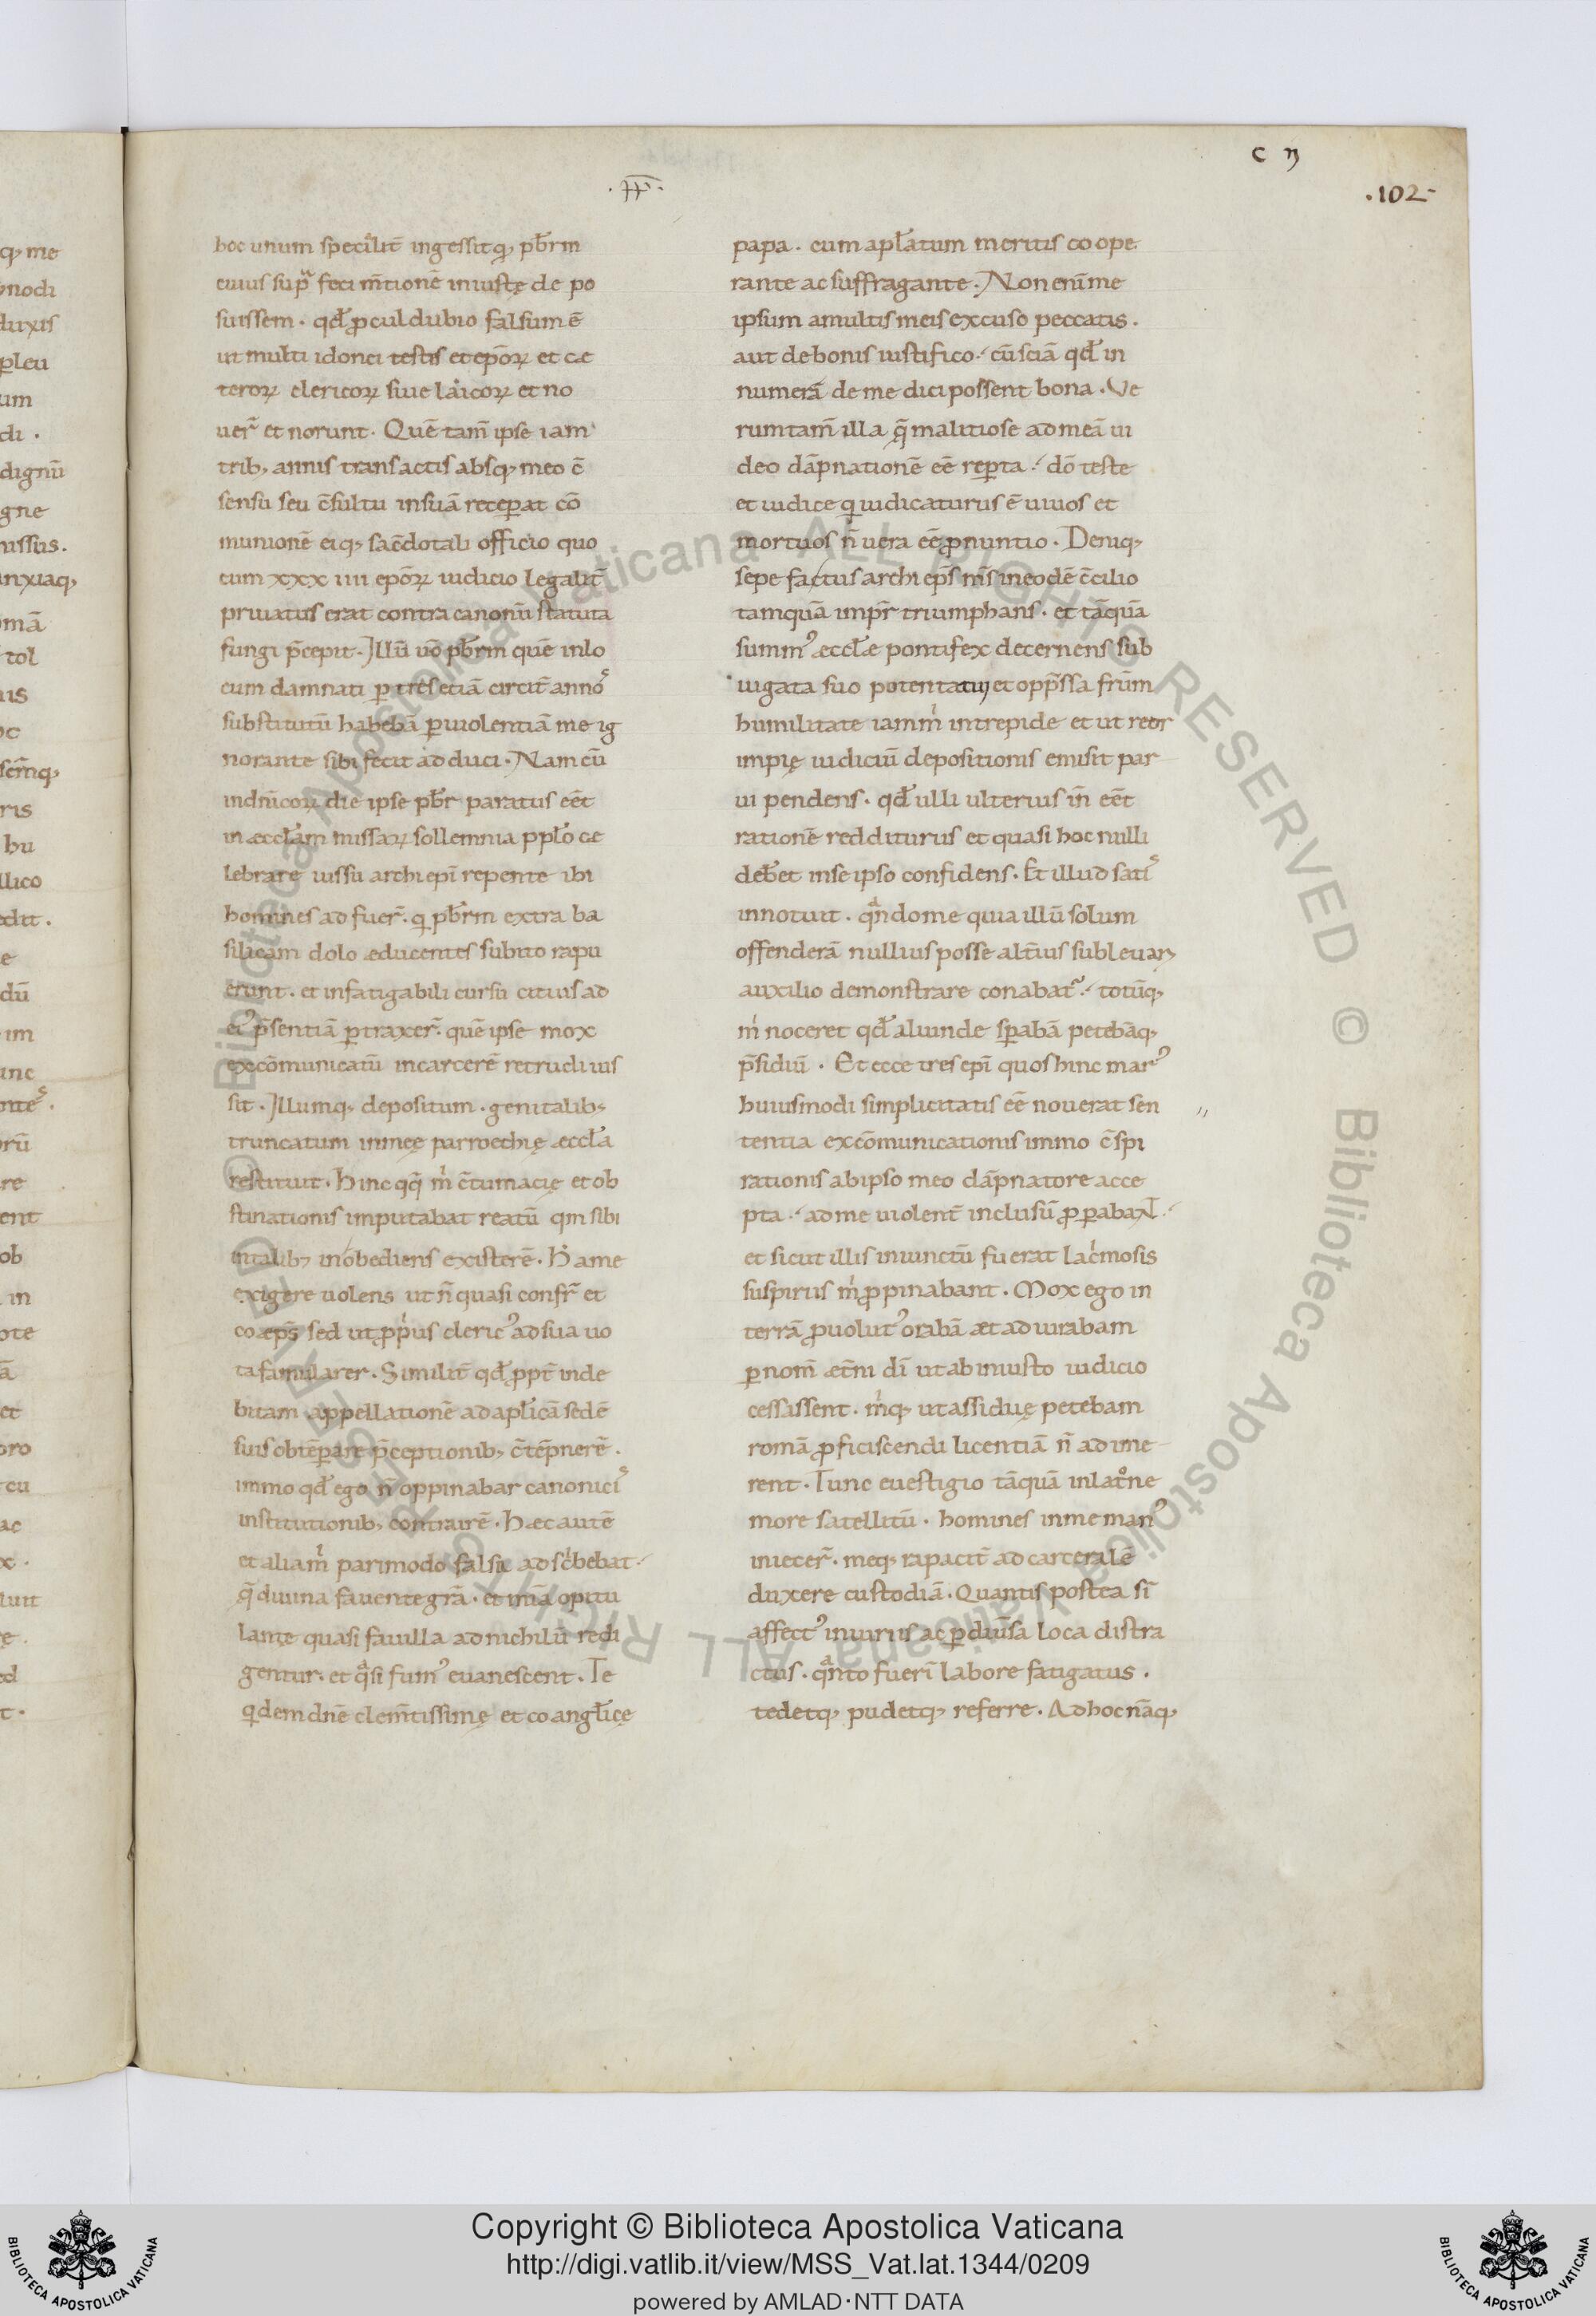 c n
.102-
hoc unum speciˡlit̄ ingessit q; pb̄rm
cuius sup̃ feci m̄tionē iniustę de po
suissem . qđ procul dubio falsum ē
ut multi idonei testis et epōꝝ et cæ
teroꝝ clericoꝝ siue laicoꝝ et no
uer̄ et norunt . Quē tam̄ ipse iam
trib; annis transactis absq; meo c̄
sensu seu c̄sultu insuā receꝑat cō
munionē eiq; sac̄dotali officio quo
cum xxx iiii epōꝝ iudicio legalit̄
priuatus erat contra canonū statuta
fungi p̄cepit . Illū uō pb̄rm quē inlo
cum damnati ꝑ tres etiā circit̄ annoˢ
substitutū habebā ꝑ uiolentiā me ig
norante sibi fecit ad duci . Nam cū
indn̄icoꝝ die ipse pb̄r paratus eēt
in æccl̄am missaꝝ sollemnia ppl̄o ce
lebrare iussu archi epī repente ibi
homines ad fuer̄ . q pb̄rm extra ba
silicam dolo æducentes subito rapu
erunt . et infatigabili cursu citius ad
eiꝰ p̄sentiā ꝑtraxer̄ . quē ipse mox
excōmunicatū incarcerē retrudi ius
sit . Illumq; depositum . genitalib;
truncatum inmeę parroechię æccl̄a
restituit . Hinc qq̄ m̍ c̄tumacię et ob
stinationis imputabat reatū qm sibi
intalib; inobediens existerē . H̍ ame
exigere uolens ut n̄ quasi confr̄ et
coæps̄ sed ut ꝓp̍us clericꝰ ad sua uo
ta famularer . Similit̄ qđ ꝓpt̄ inde
bitam appellationē ad apl̄icā sedē
suis obtēꝑare p̄ceptionib; c̄tēpnerē .
immo qđ ego n̄ oppinabar canoniciˢ
institutionib; contrairē . Hæc autē
et alia m̍ parimodo falsa ad sc̍bebat ./
q̄ diuina fauente grā . et mīa opitu
lante quasi fauilla ad nichilū redi
gentur . et qᵃsi fumꝰ euanescent . Te
qdem dn̄e clem̄tissimę et co angl̄icę
papa . cum apl̄atum meritis co ope
rante ac suffragante . Non enī me
ipsum amultis meis excuso peccatis .
aut de bonis iustifico ./ cū sciā qđ in
numerā de me dici possent bona . Ve
rumtam̄ illa q̄ malitiose ad meā ui
deo dāpnationē eē reꝑta ./ dō teste
et iudice q iudicaturus ē uiuos et
mortuos n̄ uera eē ꝓnuntio . Deniq;
sepe factus archi ep̄s m̄s in eodē c̄cilio
tamquā impr̄ triumphans . et tāquā
summꝰ æccl̄æ pontifex decernens sub
iugata suo potentatui et opp̄ssa frūm
humilitate iam m̍ intrepide et ut reor
impię iudiciū depositionis emisit par
ui pendens . qđ ulli ulterius in̄ eēt
rationē redditurus et quasi hoc nulli
deb̄et inse ipso confidens . Et illud satiˢ
innotuit . qᵃndo me quia illū solum
offenderā nullius posse alt̄ius subleuari
auxilio demonstrare conabat᷑ ./ totūq;
m̍ noceret qđ aliunde sꝑabā petebāq;
p̄sidiū . Et ecce tres epī quos hinc marꝰ
huiusmodi simplicitatis eē nouerat sen
tentia excōmunicationis immo c̄spi
rationis ab ipso meo dāpnatore acce
pta ./ ad me uiolent̄ inclusū ꝓꝑabant ./
et sicut illis iniunctū fuerat lac̍mosis
suspiriis m̍ ꝓpinabant . Mox ego in
terrā ꝓuolutꝰ orabā æt ad iurabam
ꝑ nom̄ æt̄ni dī ut ab iniusto iudicio
cessassent . m̍q; ut assiduę petebam
romā ꝓficiscendi licentiā n̄ ad ime
rent . Tunc euestigio tāquā inlatᵒne
more satellitū . homines in me manꝰ
iniecer̄ . meq; rapacit̄ ad carceralē
duxere custodiā . Quantis postea si᷑
affectꝰ iniuriis ac ꝑ diūsa loca distra
ctus . qᵃnto fueri᷑ labore fatigatus .
tedetq; pudetq; referre . Ad hoc nāq;
q; me
dignū
gne
unc
ent
ob
in
Copyright © Biblioteca Apostolica Vaticana
http://digi.vatlib.it/view/MSS_Vat.lat.1344/0209
powered by AMLAD·NTT DATA
BIBLIOTECA APOSTOLICA VATICANA
BIBLIOTECA APOSTOLICA VATICANA
© Biblioteca Apostolica Vaticana ALL RIGHTS RESERVED © Biblioteca Apostolica Vaticana ALL RIGHTS RESERVED